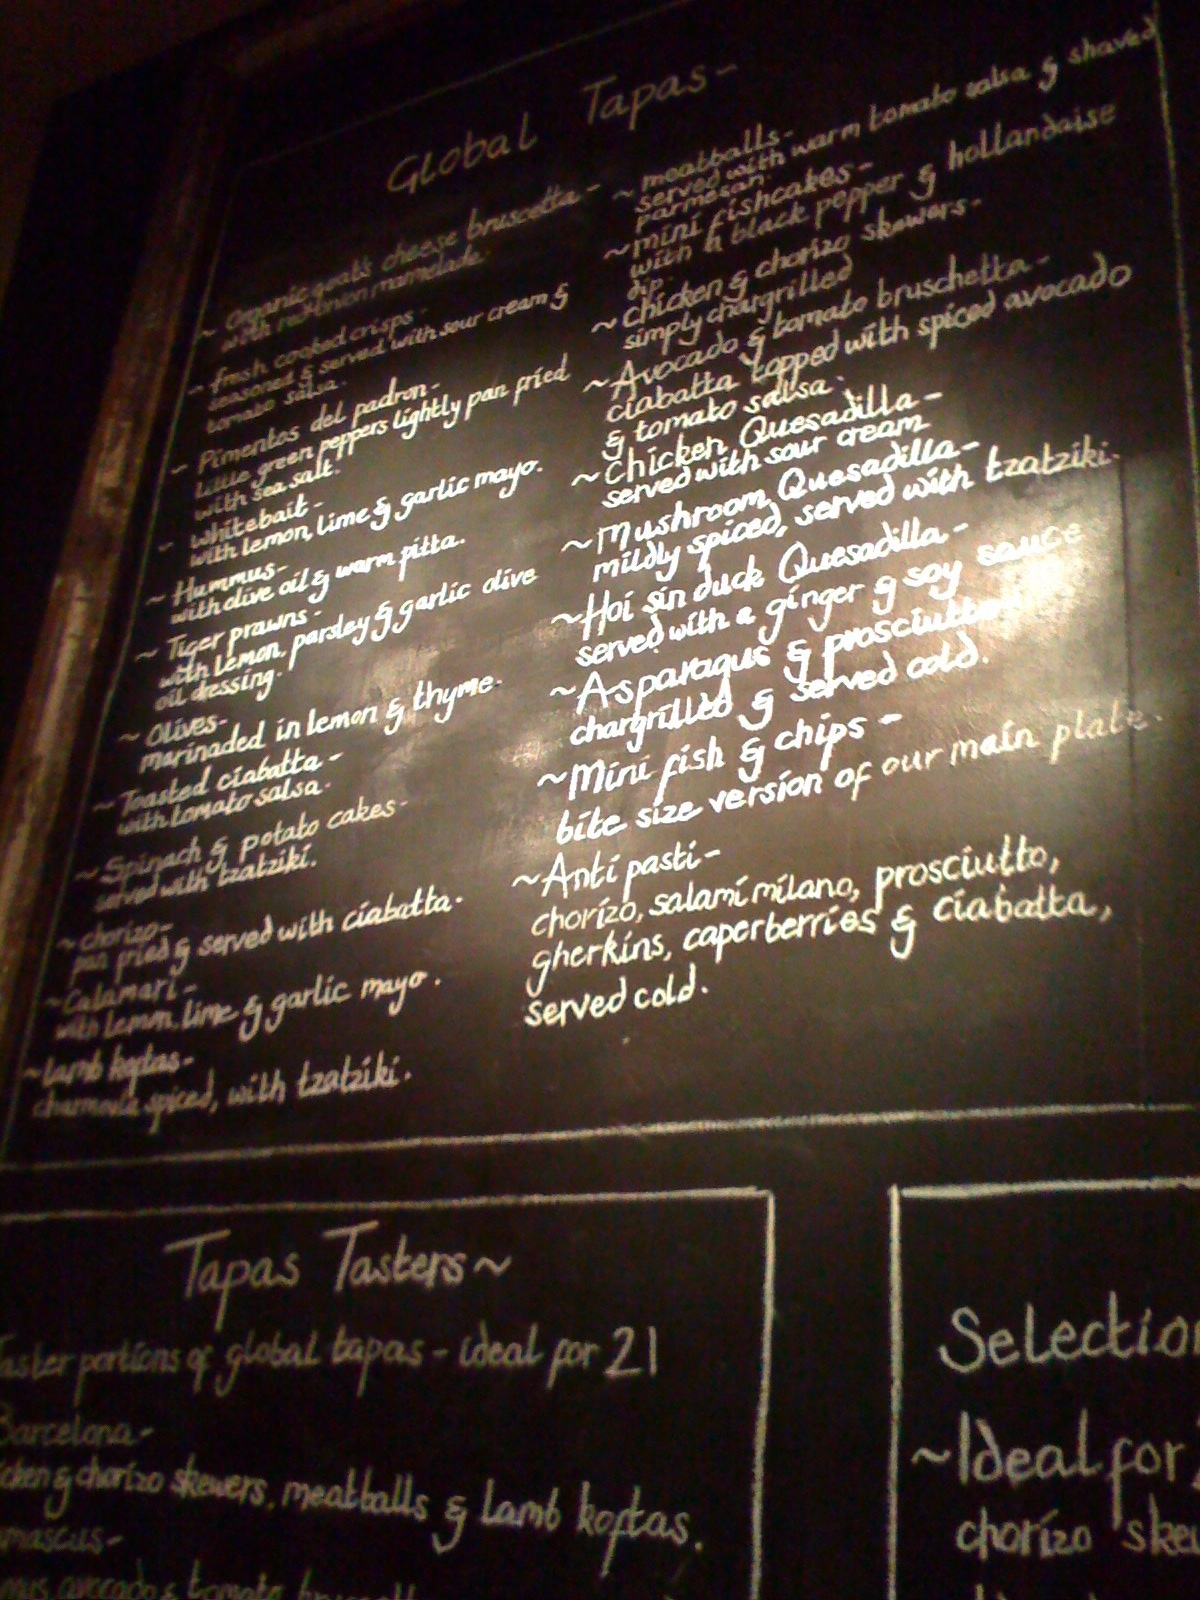 Global Tapas-
~ Organic goat's cheese bruscetta-
with red onion marmelade.
~ fresh cooked crisps-
seasoned & served with sour cream &
tomato salsa.
~ Pimentos del padron-
little green peppers lightly pan fried
with sea salt.
~ Whitebait-
with lemon, lime & garlic mayo.
~ Hummus-
with olive oil & warm pitta.
~ Tiger prawns-
with lemon, parsley & garlic olive
oil dressing.
~ Olives-
marinaded in lemon & thyme.
~ Toasted ciabatta-
with tomato salsa.
~ Spinach & potato cakes-
served with tzatziki.
~ chorizo-
pan fried & served with ciabatta.
~ Calamari-
with lemon, lime & garlic mayo.
~ lamb koftas-
spiced, with tzatziki.
~ meatballs-
served with warm tomato salsa & shaved
parmesan.
~ mini fishcakes-
with a black pepper & hollandaise
dip.
~ Chicken & chorizo skewers-
simply chargrilled
~ Avocado & tomato bruschetta-
ciabatta topped with spiced avocado
& tomato salsa.
~ Chicken Quesadilla-
served with sour cream
~ Mushroom Quesadilla-
mildly spiced, served with tzatziki.
~ Hoi sin duck Quesadilla-
served with a ginger & soy sauce
~ Asparagus & prosciutto
chargrilled & served cold.
~ Mini fish & chips-
bite size version of our main plate.
~ Anti pasti-
chorizo, salami milano, prosciutto,
gherkins, caperberries & ciabatta,
served cold.
Tapas Tasters~
Taster portions of global tapas - ideal for 2!
Barcelona-
chicken & chorizo skewers, meatballs & lamb koftas.
avocado & tomato
Selection
~ Ideal for
chorizo